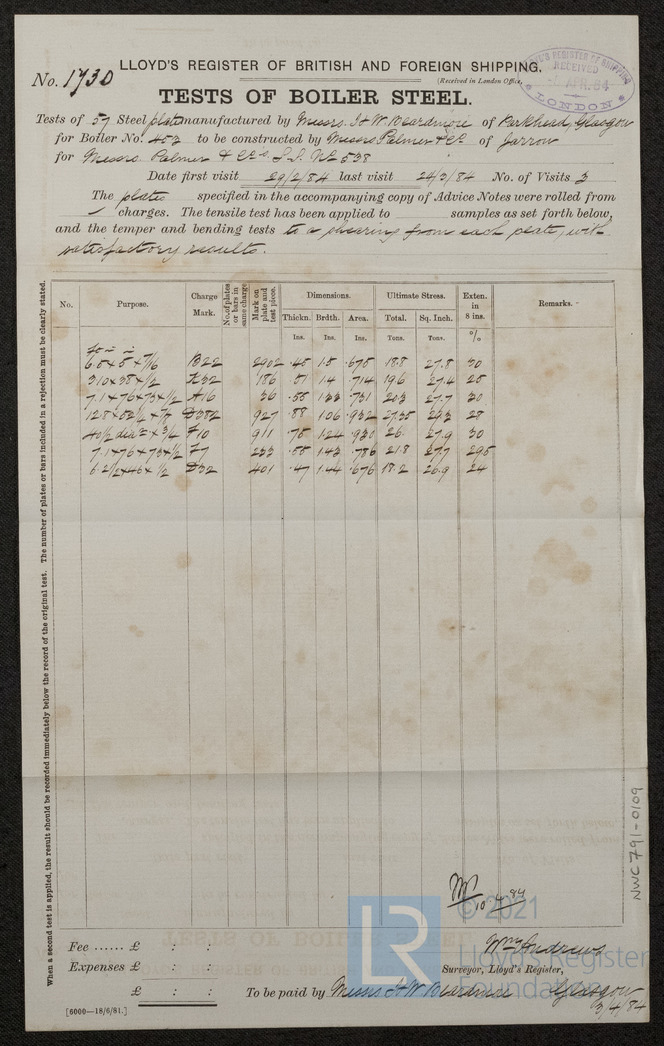 LLOYD'S REGISTER OF BRITISH AND FOREIGN SHIPPING.
No. 1730
(Received in London Office,
LLOYD'S REGISTER OF SHIPPING
RECEIVED
APR. 84
LONDON
TESTS OF BOILER STEEL.
Tests of 57 Steel plates manufactured by Messrs. I & W Beardmore of Parkhead, Glasgow
for Boiler No. 453 to be constructed by Messrs Palmer & Co of Jarrow
for Messrs. Palmer & Co's S.S. No 538
Date first visit 29/2/84 last visit 24/3/84 No. of Visits 3
The plates specified in the accompanying copy of Advice Notes were rolled from
charges. The tensile test has been applied to samples as set forth below,
and the temper and bending tests to a shearing from each plate, with
satisfactory results.
No. Purpose. Charge Mark. No. of plates or bars in same charge Mark on plate and test piece. Dimensions. Ultimate Stress. Exten. in 8 ins. Remarks.
Thickn. Brdth. Area. Total. Sq. Inch.
Ins. Ins. Ins. Tons. Tons. %
B22 2902 .45 1.5 .675 18.8 27.8 30
310 x 38 x 1/2 K32 186 .51 1.4 .714 19.6 27.4 25
7.1 x 76 x 73 x 1/2 A16 36 .55 1.33 .731 20.3 27.7 30
D382 927 .88 1.06 .932 27.35 29.3 28
40 1/2 dia x 3/4 F10 911 .75 1.24 .930 26. 27.9 30
7.1 x 76 x 73 x 1/2 F7 233 .55 1.43 .786 21.8 27.7 29.5
6.2 1/2 x 46 x 1/2 D32 401 .47 1.44 .676 18.2 26.9 24
When a second test is applied, the result should be recorded immediately below the record of the original test. The number of plates or bars included in a rejection must be clearly stated.
NWC 791-0109
10 4 84
© 2021
LR
Lloyd's Register
Foundation
Fee ...... £ : :
Wm Andrews
Expenses £ : :
Surveyor, Lloyd's Register,
£ : :
To be paid by Messrs I & W Beardmore Glasgow
3/4/84
[6000—18/6/81.]